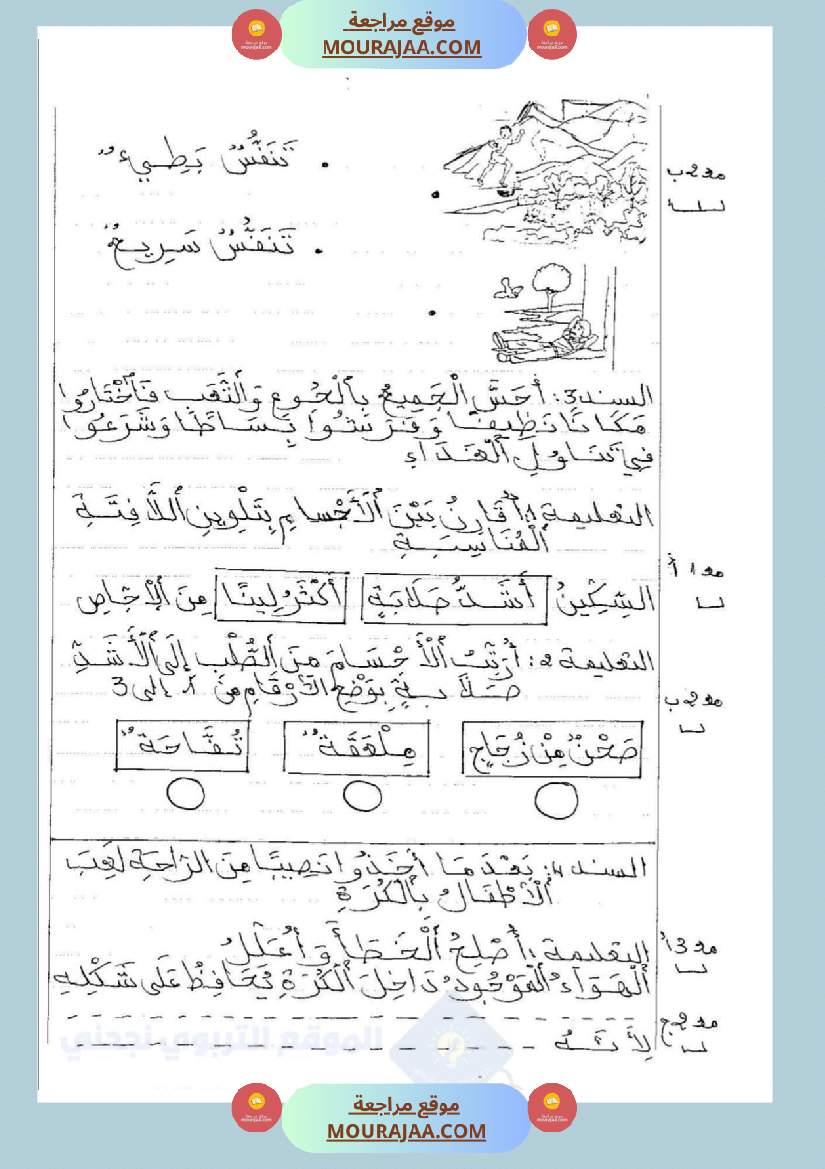 موقع مراجعة
MOURAJAA.COM
مع2ب
تَنَفُّسٌ بَطِيءٌ
تَنَفُّسٌ سَرِيعٌ
السند3: أَحَسَّ الْجَمِيعُ بِالْجُوعِ وَالتَّعَبِ فَاخْتَارُوا
مَكَانًا نَظِيفًا وَفَرَشُوا بِسَاطًا وَشَرَعُوا
فِي تَنَاوُلِ الْغَدَاءِ
التعليمة 1: أُقَارِنُ بَيْنَ الْأَجْسَامِ بِتَلْوِينِ اللَّافِتَةِ
الْمُنَاسِبَةِ
مع1أ
السِّكِّينُ أَشَدُّ صَلَابَةٍ أَكْثَرُ لِينًا مِنَ الْإِجَاصِ
التعليمة 2: أُرَتِّبُ الْأَجْسَامَ مِنَ الصُّلْبِ إِلَى الْأَشَدِّ
صَلَابَةٍ بِوَضْعِ الْأَرْقَامِ مِنْ 1 إلى 3
مع2ب
صَحْنٌ مِنْ زُجَاجٍ مِلْعَقَةٌ تُفَّاحَةٌ
السند 4: بَعْدَ مَا أَخَذُوا نَصِيبًا مِنَ الرَّاحَةِ لَعِبَ
الْأَطْفَالُ بِالْكُرَةِ
مع3أ
التعليمة 1: أُصْلِحُ الْخَطَأَ وَأُعَلِّلُ
الْهَوَاءُ الْمَوْجُودُ دَاخِلَ الْكُرَةِ يُحَافِظُ عَلَى شَكْلِهِ
مع2ج
لِأَنَّهُ
الموقع التربوي نجدني
موقع مراجعة
MOURAJAA.COM